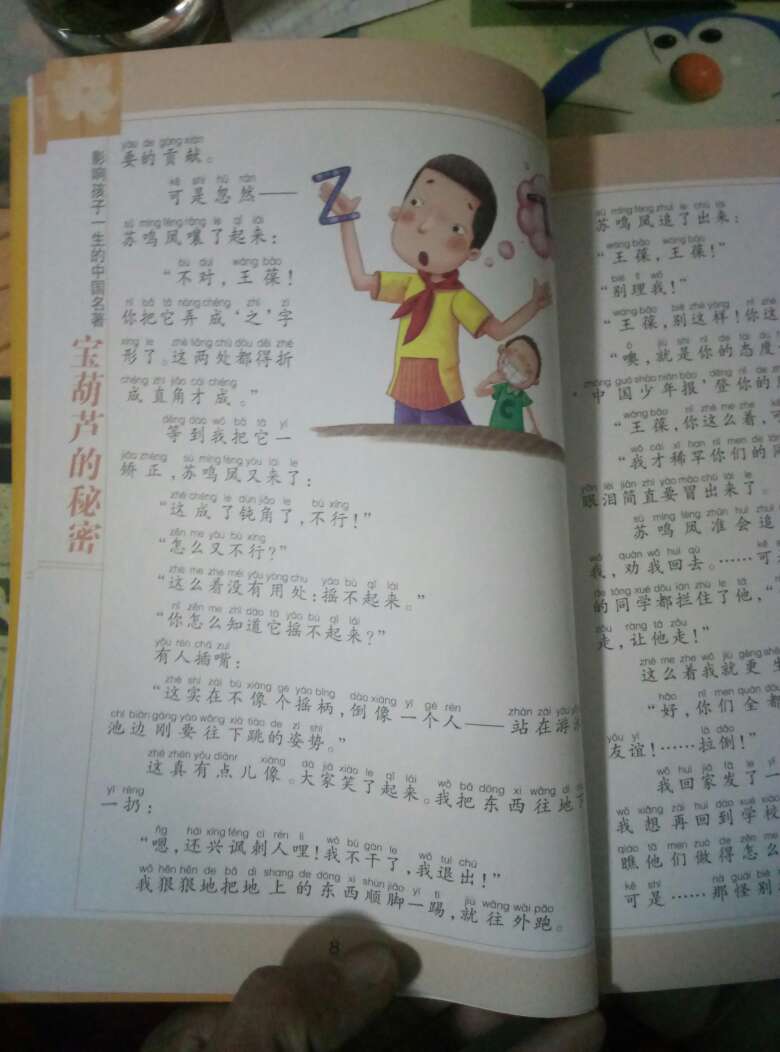 影响孩子一生的中国名著
宝葫芦的秘密
yào de gòng xiàn
要的贡献。
kě shì hū rán
可是忽然——
sū míng fèng rǎng le qǐ lái
苏鸣凤嚷了起来：
bú duì wáng bǎo
“不对，王葆！
nǐ bǎ tā nòng chéng zhī zì
你把它弄成‘之’字
xíng le zhè liǎng chù dōu děi zhé
形了。这两处都得折
chéng zhí jiǎo cái chéng
成直角才成。”
děng dào wǒ bǎ tā yì
等到我把它一
jiǎo zhèng sū míng fèng yòu lái le
矫正，苏鸣凤又来了：
zhè chéng le dùn jiǎo le bù xíng
“这成了钝角了，不行！”
zěn me yòu bù xíng
“怎么又不行？”
zhè me zhe méi yǒu yòng chu yáo bù qǐ lái
“这么着没有用处：摇不起来。”
nǐ zěn me zhī dào tā yáo bù qǐ lái
“你怎么知道它摇不起来？”
yǒu rén chā zuǐ
有人插嘴：
zhè shí zài bú xiàng gè yáo bǐng dào xiàng yí gè rén zhàn zài yóu
“这实在不像个摇柄，倒像一个人——站在游
chí biān gāng yào wǎng xià tiào de zī shì
池边刚要往下跳的姿势。”
zhè zhēn yǒu diǎnr xiàng dà jiā xiào le qǐ lái wǒ bǎ dōng xi wǎng dì
这真有点儿像。大家笑了起来。我把东西往地下
yì rēng
一扔：
ńg hái xìng fěng cì rén li wǒ bú gàn le wǒ tuì chū
“嗯，还兴讽刺人哩！我不干了，我退出！”
wǒ hěn hěn de bǎ dì shang de dōng xi shùn jiǎo yì tī jiù wǎng wài pǎo
我狠狠地把地上的东西顺脚一踢，就往外跑。
8
Z
C
sū míng fèng zhuī le chū lái
苏鸣凤追了出来：
wáng bǎo wáng bǎo
“王葆，王葆！”
bié lǐ wǒ
“别理我！”
wáng bǎo bié zhè yàng nǐ zhè
“王葆，别这样！你这
“噢，就是你的态度
zhōng guó shào nián bào dēng nǐ de
‘中国少年报’登你的
wáng bǎo nǐ zhè me zhe
“王葆，你这么着，
wǒ cái xī han nǐ men de
“我才稀罕你们的
yǎn lèi jiǎn zhí yào mào chū lái le
眼泪简直要冒出来了。
sū míng fèng zhǔn huì zhuī
苏鸣凤准会追
wǒ quàn wǒ huí qù kě
我，劝我回去。……可
de tóng xué dōu lán zhù le tā
的同学都拦住了他，“
zǒu ràng tā zǒu
走，让他走！”
zhè me zhe wǒ jiù gèng
这么着我就更
hǎo nǐ men quán dōu
“好，你们全都
yǒu yì lā dǎo
友谊！……拉倒！”
wǒ huí jiā fā le
我回家发了一
wǒ xiǎng zài huí dào xué xiào
我想再回到学校
qiáo tā men zuò de zěn me
瞧他们做得怎么
kě shì nà guài bié
可是……那怪别